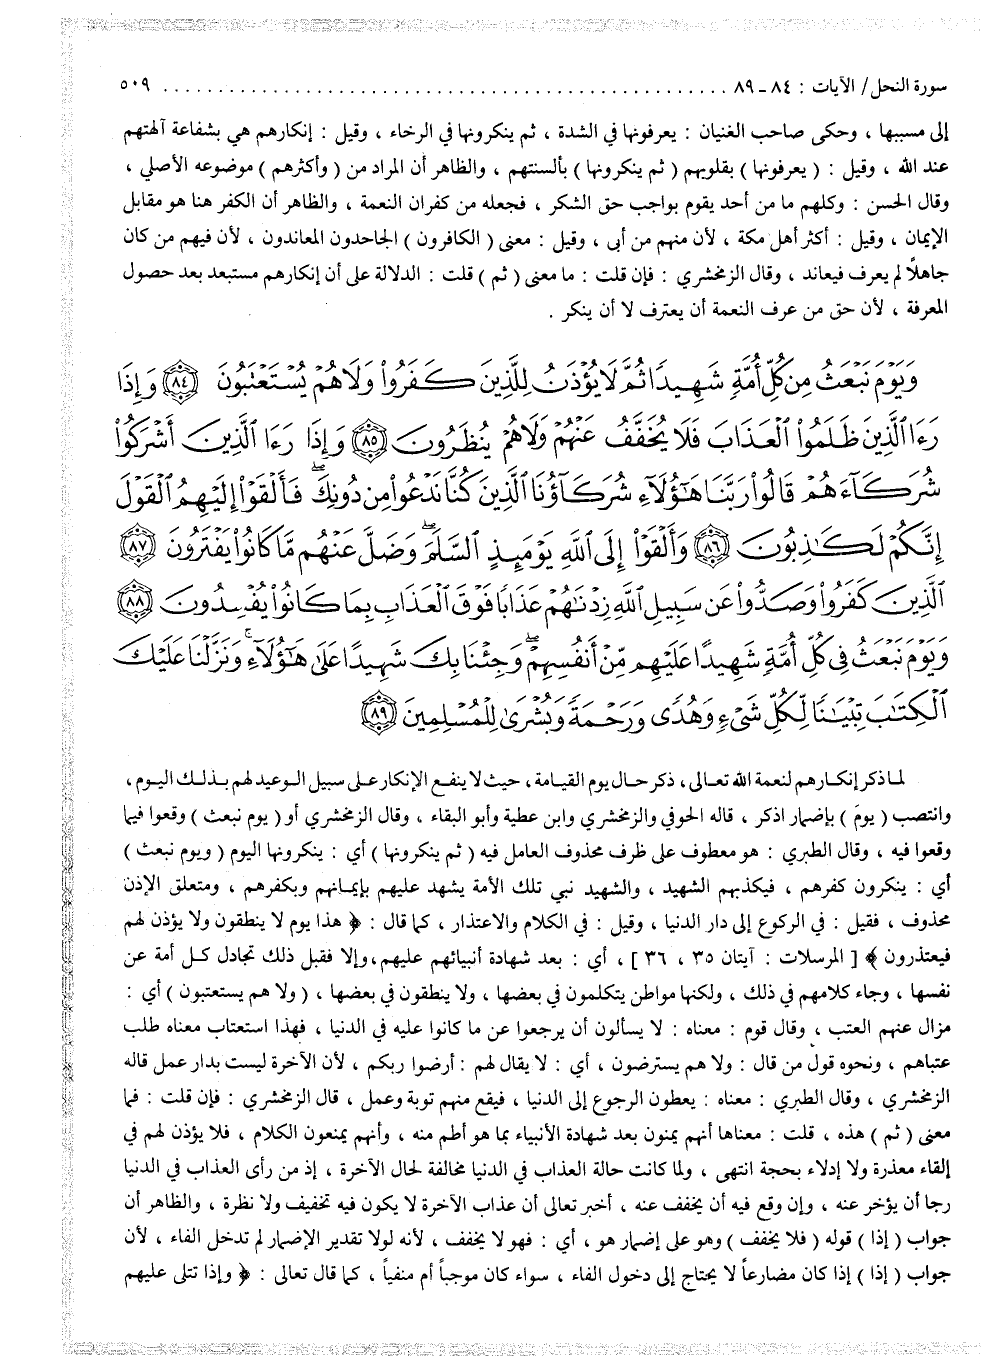 سورة النحل/ الآيات : ٨٤ ـ ٨٩ ........................................................ ٥٠٩
إلى مسببها ، وحكى صاحب الغنيان : يعرفونها في الشدة ، ثم ينكرونها في الرخاء ، وقيل : إنكارهم هي بشفاعة آلهتهم
عند الله ، وقيل : ( يعرفونها ) بقلوبهم ( ثم ينكرونها ) بألسنتهم ، والظاهر أن المراد من ( وأكثرهم ) موضوعه الأصلي ،
وقال الحسن : وكلهم ما من أحد يقوم بواجب حق الشكر ، فجعله من كفران النعمة ، والظاهر أن الكفر هنا هو مقابل
الإيمان ، وقيل : أكثر أهل مكة ، لأن منهم من أبى ، وقيل : معنى ( الكافرون ) الجاحدون المعاندون ، لأن فيهم من كان
جاهلاً لم يعرف فيعاند ، وقال الزمخشري : فإن قلت : ما معنى ( ثم ) قلت : الدلالة على أن إنكارهم مستبعد بعد حصول
المعرفة ، لأن حق من عرف النعمة أن يعترف لا أن ينكر .
وَيَوْمَ نَبْعَثُ مِن كُلِّ أُمَّةٍ شَهِيدًا ثُمَّ لَا يُؤْذَنُ لِلَّذِينَ كَفَرُوا۟ وَلَا هُمْ يُسْتَعْتَبُونَ ٨٤ وَإِذَا
رَءَا ٱلَّذِينَ ظَلَمُوا۟ ٱلْعَذَابَ فَلَا يُخَفَّفُ عَنْهُمْ وَلَا هُمْ يُنظَرُونَ ٨٥ وَإِذَا رَءَا ٱلَّذِينَ أَشْرَكُوا۟
شُرَكَآءَهُمْ قَالُوا۟ رَبَّنَا هَٰٓؤُلَآءِ شُرَكَآؤُنَا ٱلَّذِينَ كُنَّا نَدْعُوا۟ مِن دُونِكَ ۖ فَأَلْقَوْا۟ إِلَيْهِمُ ٱلْقَوْلَ
إِنَّكُمْ لَكَٰذِبُونَ ٨٦ وَأَلْقَوْا۟ إِلَى ٱللَّهِ يَوْمَئِذٍ ٱلسَّلَمَ ۖ وَضَلَّ عَنْهُم مَّا كَانُوا۟ يَفْتَرُونَ ٨٧
ٱلَّذِينَ كَفَرُوا۟ وَصَدُّوا۟ عَن سَبِيلِ ٱللَّهِ زِدْنَٰهُمْ عَذَابًا فَوْقَ ٱلْعَذَابِ بِمَا كَانُوا۟ يُفْسِدُونَ ٨٨
وَيَوْمَ نَبْعَثُ فِى كُلِّ أُمَّةٍ شَهِيدًا عَلَيْهِم مِّنْ أَنفُسِهِمْ ۖ وَجِئْنَا بِكَ شَهِيدًا عَلَىٰ هَٰٓؤُلَآءِ ۚ وَنَزَّلْنَا عَلَيْكَ
ٱلْكِتَٰبَ تِبْيَٰنًا لِّكُلِّ شَىْءٍ وَهُدًى وَرَحْمَةً وَبُشْرَىٰ لِلْمُسْلِمِينَ ٨٩
لما ذكر إنكارهم لنعمة الله تعالى ، ذكر حال يوم القيامة ، حيث لا ينفع الإنكار على سبيل الوعيد لهم بذلك اليوم ،
وانتصب ( يومَ ) بإضمار اذكر ، قاله الحوفي والزمخشري وابن عطية وأبو البقاء ، وقال الزمخشري أو ( يوم نبعث ) وقعوا فيما
وقعوا فيه ، وقال الطبري : هو معطوف على ظرف محذوف العامل فيه ( ثم ينكرونها ) أي : ينكرونها اليوم ( ويوم نبعث )
أي : ينكرون كفرهم ، فيكذبهم الشهيد ، والشهيد نبي تلك الأمة يشهد عليهم بإيمانهم وبكفرهم ، ومتعلق الإذن
محذوف ، فقيل : في الركوع إلى دار الدنيا ، وقيل : في الكلام والاعتذار ، كما قال : ﴿ هذا يوم لا ينطقون ولا يؤذن لهم
فيعتذرون ﴾ [ المرسلات : آيتان ٣٥ ، ٣٦ ] ، أي : بعد شهادة أنبيائهم عليهم، وإلا فقبل ذلك تجادل كل أمة عن
نفسها ، وجاء كلامهم في ذلك ، ولكنها مواطن يتكلمون في بعضها ، ولا ينطقون في بعضها ، ( ولا هم يستعتبون ) أي :
مزال عنهم العتب ، وقال قوم : معناه : لا يسألون أن يرجعوا عن ما كانوا عليه في الدنيا ، فهذا استعتاب معناه طلب
عتباهم ، ونحوه قول من قال : ولا هم يسترضون ، أي : لا يقال لهم : أرضوا ربكم ، لأن الآخرة ليست بدار عمل قاله
الزمخشري ، وقال الطبري : معناه : يعطون الرجوع إلى الدنيا ، فيقع منهم توبة وعمل ، قال الزمخشري : فإن قلت : فما
معنى ( ثم ) هذه ، قلت : معناها أنهم يمنون بعد شهادة الأنبياء بما هو أطم منه ، وأنهم يمنعون الكلام ، فلا يؤذن لهم في
إلقاء معذرة ولا إدلاء بحجة انتهى ، ولما كانت حالة العذاب في الدنيا مخالفة لحال الآخرة ، إذ من رأى العذاب في الدنيا
رجا أن يؤخر عنه ، وإن وقع فيه أن يخفف عنه ، أخبر تعالى أن عذاب الآخرة لا يكون فيه تخفيف ولا نظرة ، والظاهر أن
جواب ( إذا ) قوله ( فلا يخفف ) وهو على إضمار هو ، أي : فهو لا يخفف ، لأنه لولا تقدير الإضمار لم تدخل الفاء ، لأن
جواب ( إذا ) إذا كان مضارعاً لا يحتاج إلى دخول الفاء ، سواء كان موجباً أم منفياً ، كما قال تعالى : ﴿ وإذا تتلى عليهم